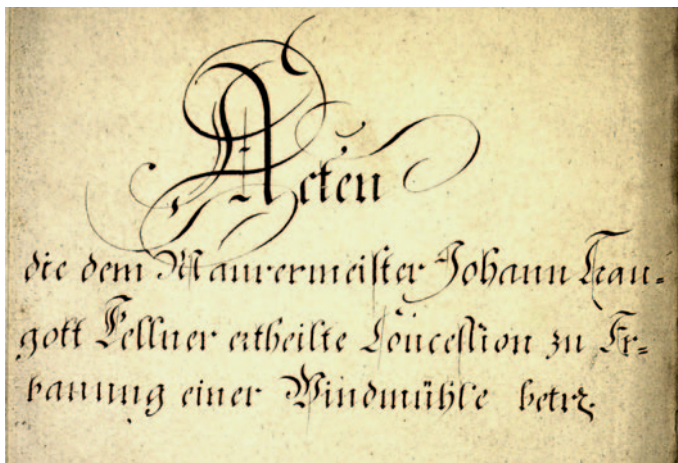 Acten
die dem Maurermeister Johann Trau-
gott Fellner ertheilte Concession zu Er-
bauung einer Windmühle betr.